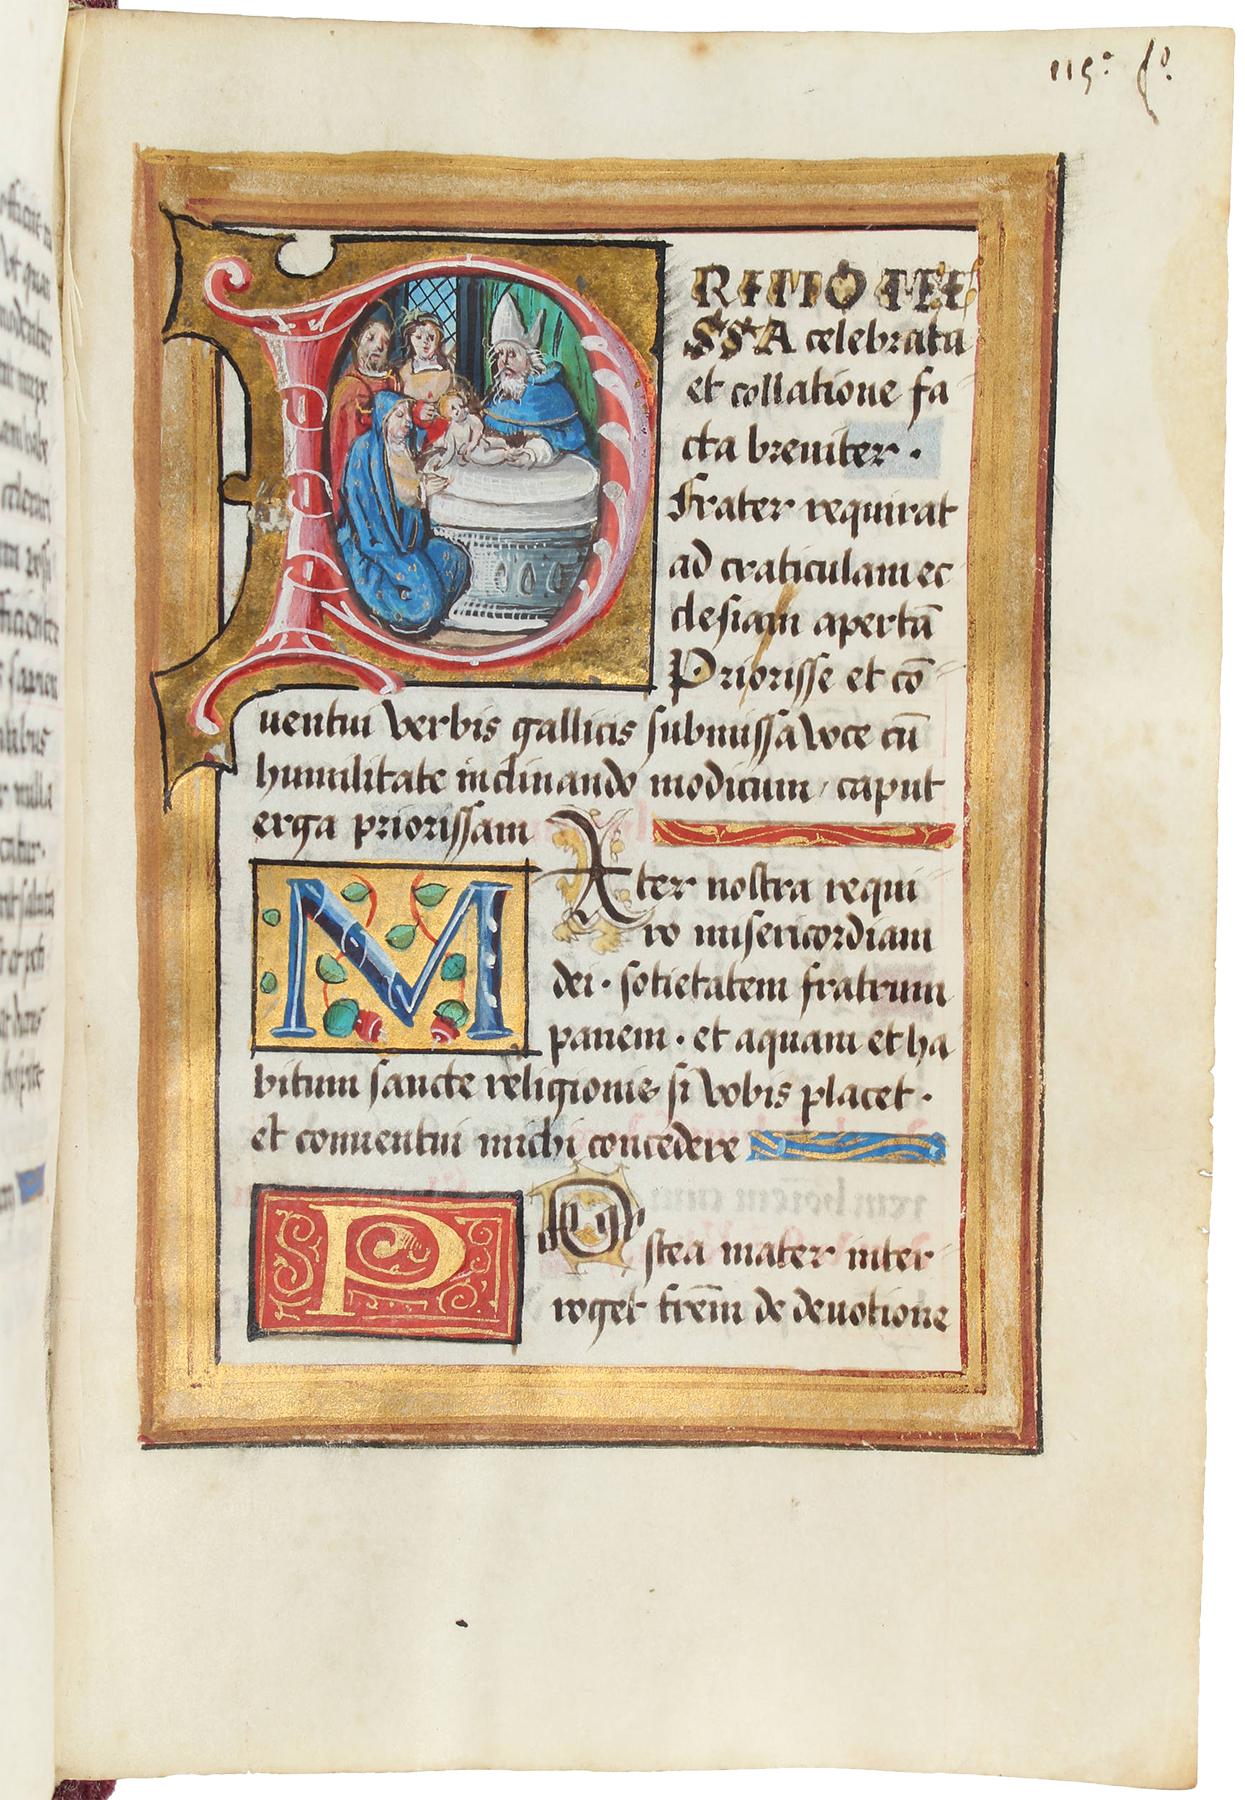 115º fº
PRIMO MI
SSA celebrata
et collatione fa
cta breuiter ·
Frater requirat
ad craticulam ec
clesiam apertā
Priorisse et cō
uentui verbis gallicis submissa voce cū
humilitate inclinando modicum / caput
erga priorissam
MAter nostra requi
ro misericordiam
dei · sotietatem fratrum
panem · et aquam et ha
bitum sancte religionis si vobis placet ·
et conuentui michi concedere
POstea mater inter
roget frēm de deuotione